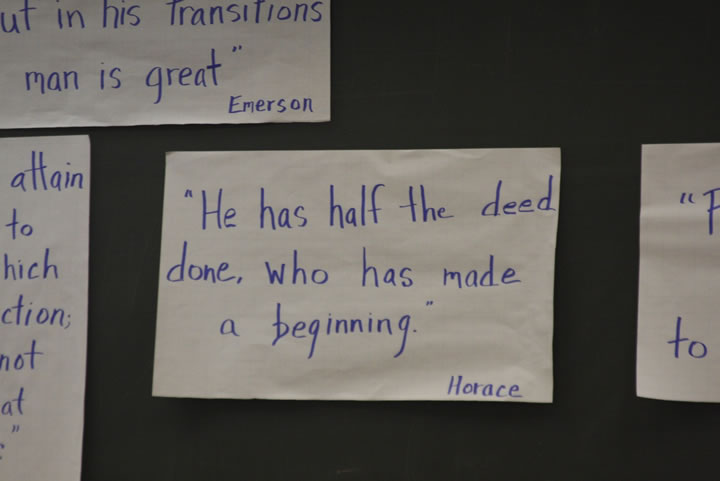 ut in his Transitions
man is great"
Emerson
attain
to
hich
ction;
not
at
"
"He has half the deed
done, who has made
a beginning."
Horace
"
to